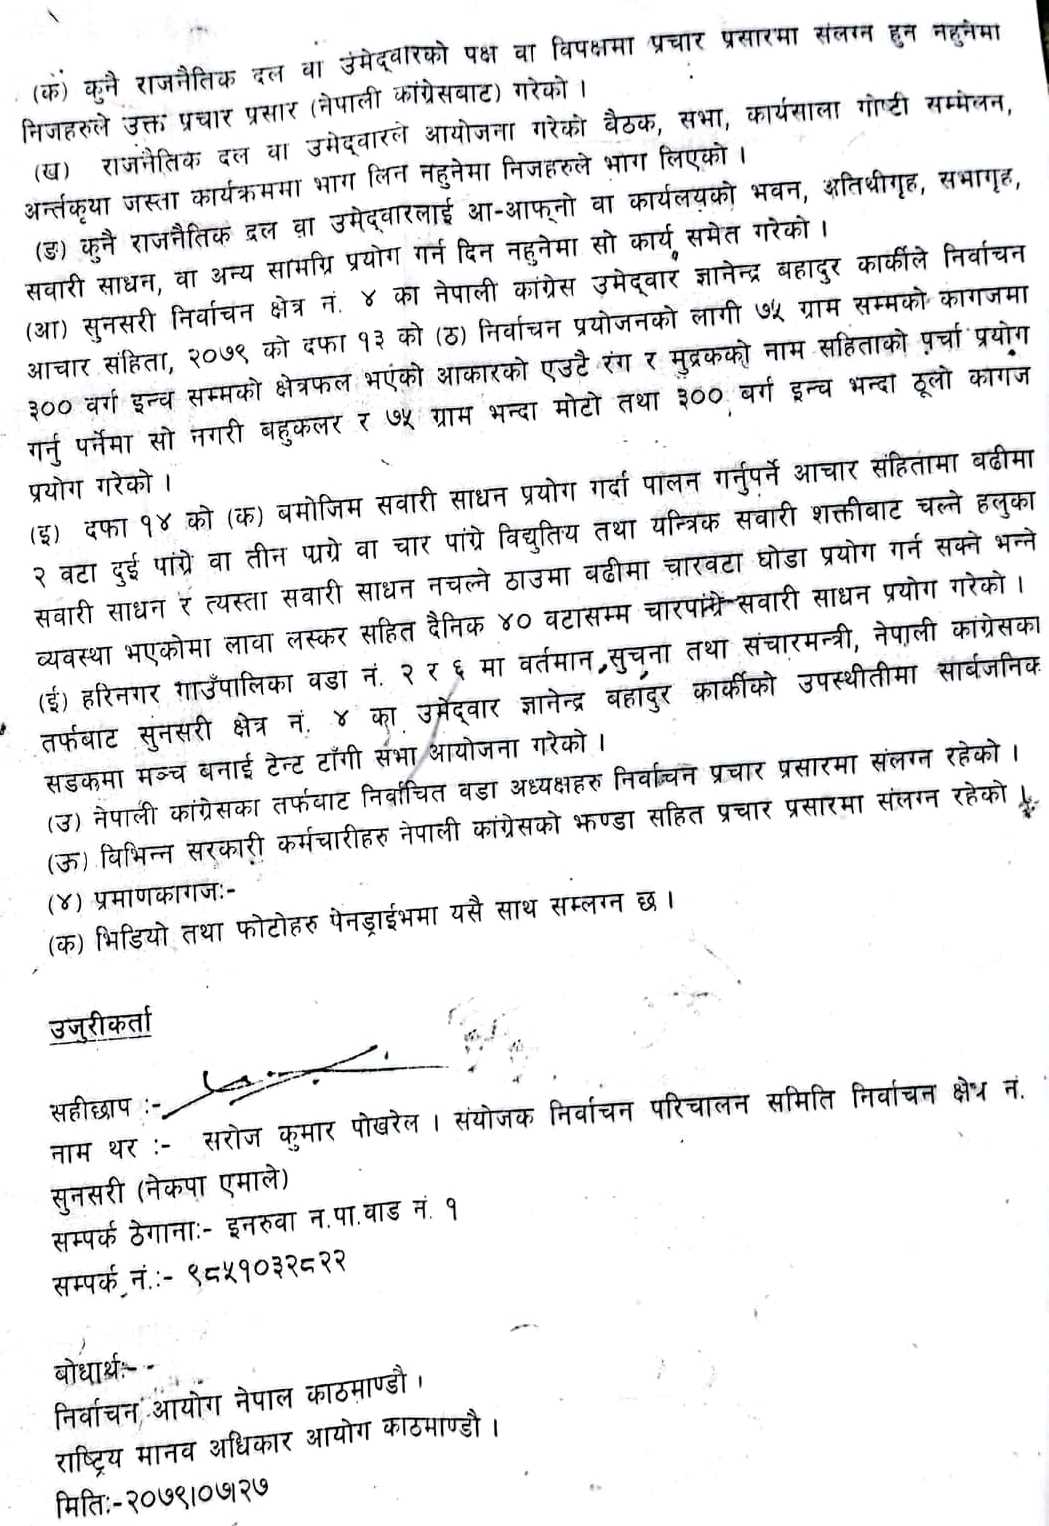 (क) कुनै राजनैतिक दल वा उमेद्वारको पक्ष वा विपक्षमा प्रचार प्रसारमा संलग्न हुन नहुनेमा
निजहरुले उक्त प्रचार प्रसार (नेपाली कांग्रेसबाट) गरेको ।
(ख) राजनैतिक दल वा उमेद्वारले आयोजना गरेको बैठक, सभा, कार्यसाला गोष्टी सम्मेलन,
अर्न्तकृया जस्ता कार्यक्रममा भाग लिन नहुनेमा निजहरुले भाग लिएको ।
(ङ) कुनै राजनैतिक दल वा उमेद्वारलाई आ-आफ्नो वा कार्यलयको भवन, अतिथीगृह, सभागृह,
सवारी साधन, वा अन्य सामग्रि प्रयोग गर्न दिन नहुनेमा सो कार्य समेत गरेको ।
(आ) सुनसरी निर्वाचन क्षेत्र नं. ४ का नेपाली कांग्रेस उमेद्वार ज्ञानेन्द्र बहादुर कार्कीले निर्वाचन
आचार संहिता, २०७९ को दफा १३ को (ठ) निर्वाचन प्रयोजनको लागी ७५ ग्राम सम्मको कागजमा
३०० वर्ग इन्च सम्मको क्षेत्रफल भएको आकारको एउटै रंग र मुद्रकको नाम सहिताको पर्चा प्रयोग
गर्नु पर्नेमा सो नगरी बहुकलर र ७५ ग्राम भन्दा मोटो तथा ३०० बर्ग इन्च भन्दा ठूलो कागज
प्रयोग गरेको ।
(इ) दफा १४ को (क) बमोजिम सवारी साधन प्रयोग गर्दा पालन गर्नुपर्ने आचार संहितामा बढीमा
२ वटा दुई पांग्रे वा तीन पाग्रे वा चार पांग्रे विद्युतिय तथा यन्त्रिक सवारी शक्तीबाट चल्ने हलुका
सवारी साधन र त्यस्ता सवारी साधन नचल्ने ठाउमा बढीमा चारवटा घोडा प्रयोग गर्न सक्ने भन्ने
व्यवस्था भएकोमा लावा लस्कर सहित दैनिक ४० वटासम्म चारपांग्रे सवारी साधन प्रयोग गरेको ।
(ई) हरिनगर गाउँपालिका वडा नं. २ र ६ मा वर्तमान सुचना तथा संचारमन्त्री, नेपाली कांग्रेसका
तर्फबाट सुनसरी क्षेत्र नं. ४ का उमेद्वार ज्ञानेन्द्र बहादुर कार्कीको उपस्थीतीमा सार्वजनिक
सडकमा मञ्च बनाई टेन्ट टाँगी सभा आयोजना गरेको ।
(उ) नेपाली कांग्रेसका तर्फबाट निर्वाचित वडा अध्यक्षहरु निर्वाचन प्रचार प्रसारमा संलग्न रहेको ।
(ऊ) विभिन्न सरकारी कर्मचारीहरु नेपाली कांग्रेसको झण्डा सहित प्रचार प्रसारमा संलग्न रहेको ।
(४) प्रमाणकागजः-
(क) भिडियो तथा फोटोहरु पेनड्राईभमा यसै साथ सम्लग्न छ ।
उजुरीकर्ता
सहीछाप :-
नाम थर :- सरोज कुमार पोखरेल । संयोजक निर्वाचन परिचालन समिति निर्वाचन क्षेत्र नं.
सुनसरी (नेकपा एमाले)
सम्पर्क ठेगानाः- इनरुवा न.पा.वाड नं. १
सम्पर्क नं.:- ९८५१०३२८२२
बोधार्थः-
निर्वाचन आयोग नेपाल काठमाण्डौ ।
राष्ट्रिय मानव अधिकार आयोग काठमाण्डौ ।
मितिः-२०७९।०७।२७